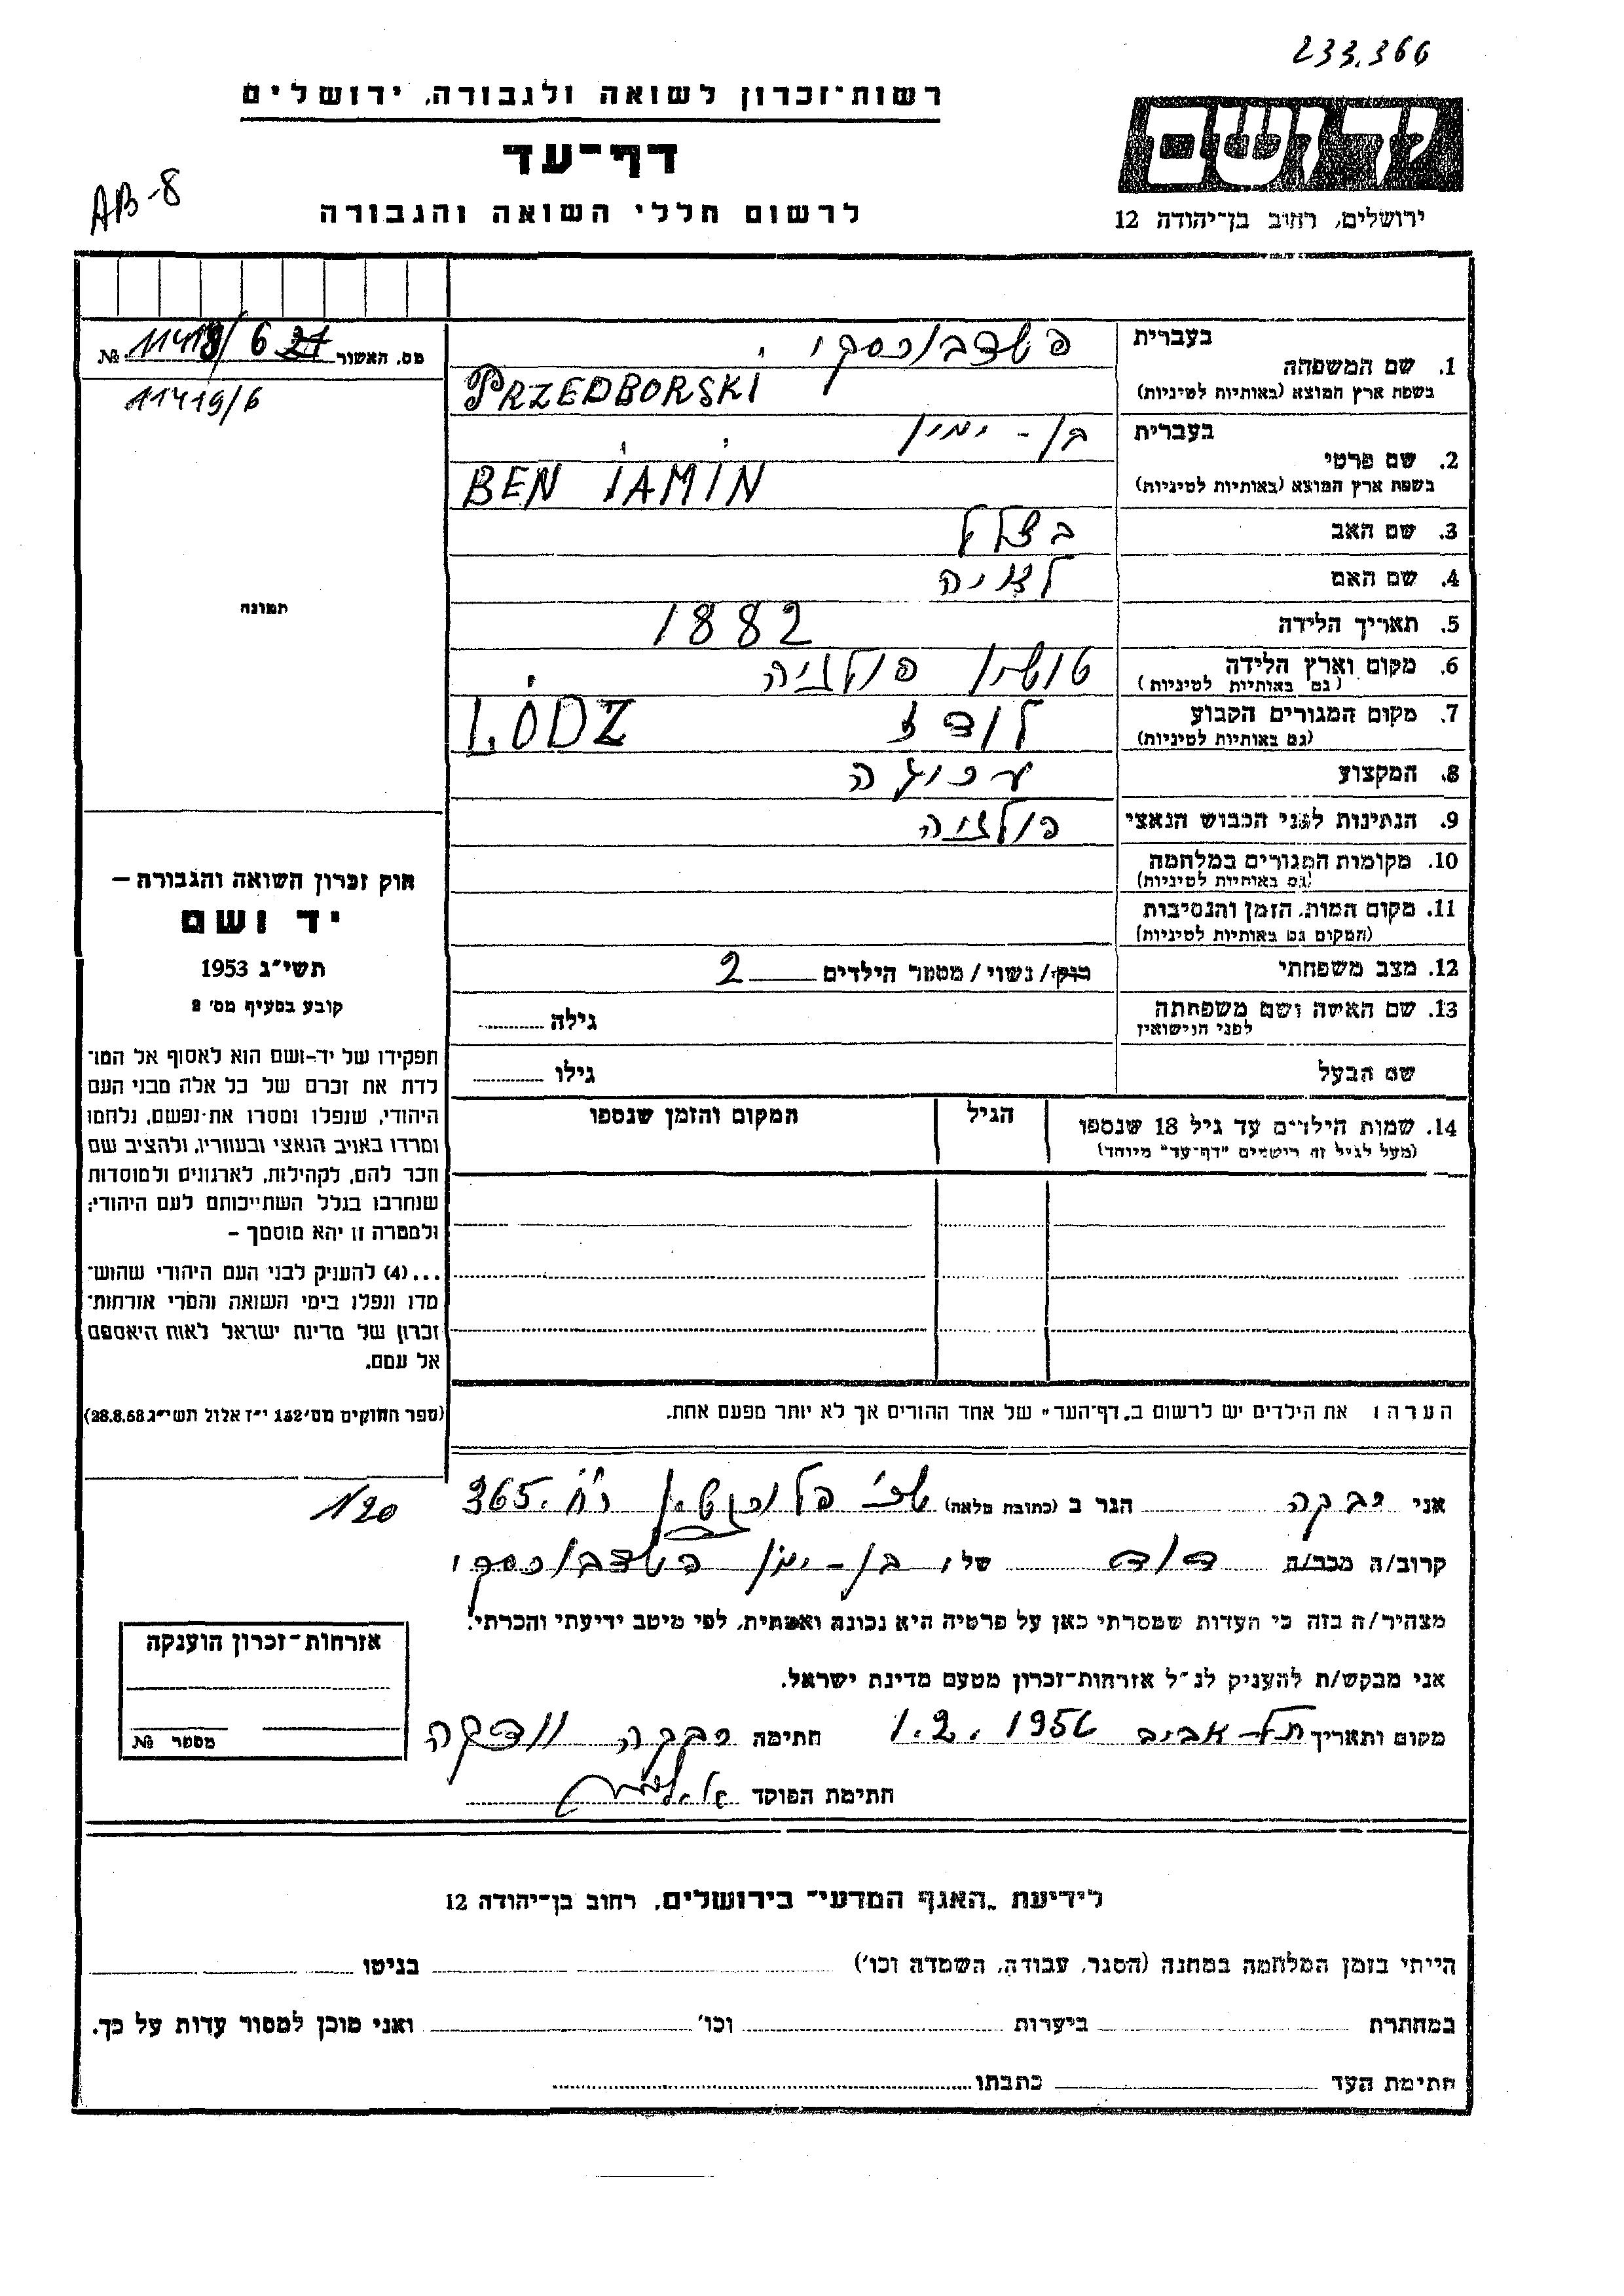 233.366
רשות־זכרון לשואה ולגבורה, ירושלים
דף־עד
לרשום חללי השואה והגבורה
AB-8
ידושם
ירושלים, רחוב בן־יהודה 12
מס. האשור 11419/6 №
11419/6
בעברית
1. שם המשפחה
בשפת ארץ המוצא (באותיות לטיניות)
PRZEDBORSKI
בעברית בן - ימין
2. שם פרטי
בשפת ארץ המוצא (באותיות לטיניות)
BEN IAMIN
3. שם האב בצלל
4. שם האם
5. תאריך הלידה 1882
6. מקום וארץ הלידה טושין פולניה
(גם באותיות לטיניות)
7. מקום המגורים הקבוע לודז LODZ
(גם באותיות לטיניות)
8. המקצוע
9. הנתינות לפני הכבוש הנאצי פולניה
10. מקומות המגורים במלחמה
(גם באותיות לטיניות)
11. מקום המות, הזמן והנסיבות
(המקום גם באותיות לטיניות)
12. מצב משפחתי רוק/ נשוי/ מספר הילדים 2
13. שם האשה ושם משפחתה
לפני הנישואין
גילה
שם הבעל גילו
14. שמות הילדים עד גיל 18 שנספו
(מעל לגיל זה רישמים "דף־עד" מיוחד)
הגיל
המקום והזמן שנספו
תמונה
חוק זכרון השואה והגבורה –
יד ושם
תשי"ג 1953
קובע בסעיף מס' 2
תפקידו של יד-ושם הוא לאסוף אל המו־
לדת את זכרם של כל אלה מבני העם
היהודי, שנפלו ומסרו את־נפשם, נלחמו
ומרדו באויב הנאצי ובעוזריו, ולהציב שם
וזכר להם, לקהילות, לארגונים ולמוסדות
שנחרבו בגלל השתייכותם לעם היהודי;
ולמטרה זו יהא מוסמך –
...(4) להעניק לבני העם היהודי שהוש־
מדו ונפלו בימי השואה והמרי אזרחות־
זכרון של מדינת ישראל לאות היאספם
אל עמם.
(ספר החוקים מס' 132 י"ז אלול תשי"ג 28.8.53)
הערה: את הילדים יש לרשום ב„דף־העד" של אחד ההורים אך לא יותר מפעם אחת.
1/20
אני רבקה הגר ב (כתובת מלאה) 365
קרוב/ה מכר/ה דוד של בן - ימין פשדבורסקי
מצהיר/ה בזה כי העדות שמסרתי כאן על פרטיה היא נכונה ואמתית, לפי מיטב ידיעתי והכרתי.
אני מבקש/ת להעניק לנ"ל אזרחות־זכרון מטעם מדינת ישראל.
מקום ותאריך תל-אביב 1.2.1956 חתימה רבקה
חתימת הפוקד
אזרחות־זכרון הוענקה
מספר №
לידיעת „האגף המדעי" בירושלים, רחוב בן־יהודה 12
הייתי בזמן המלחמה במחנה (הסגר, עבודה, השמדה וכו') בגיטו
במחתרת ביערות וכו' ואני מוכן למסור עדות על כך.
חתימת העד כתבתו